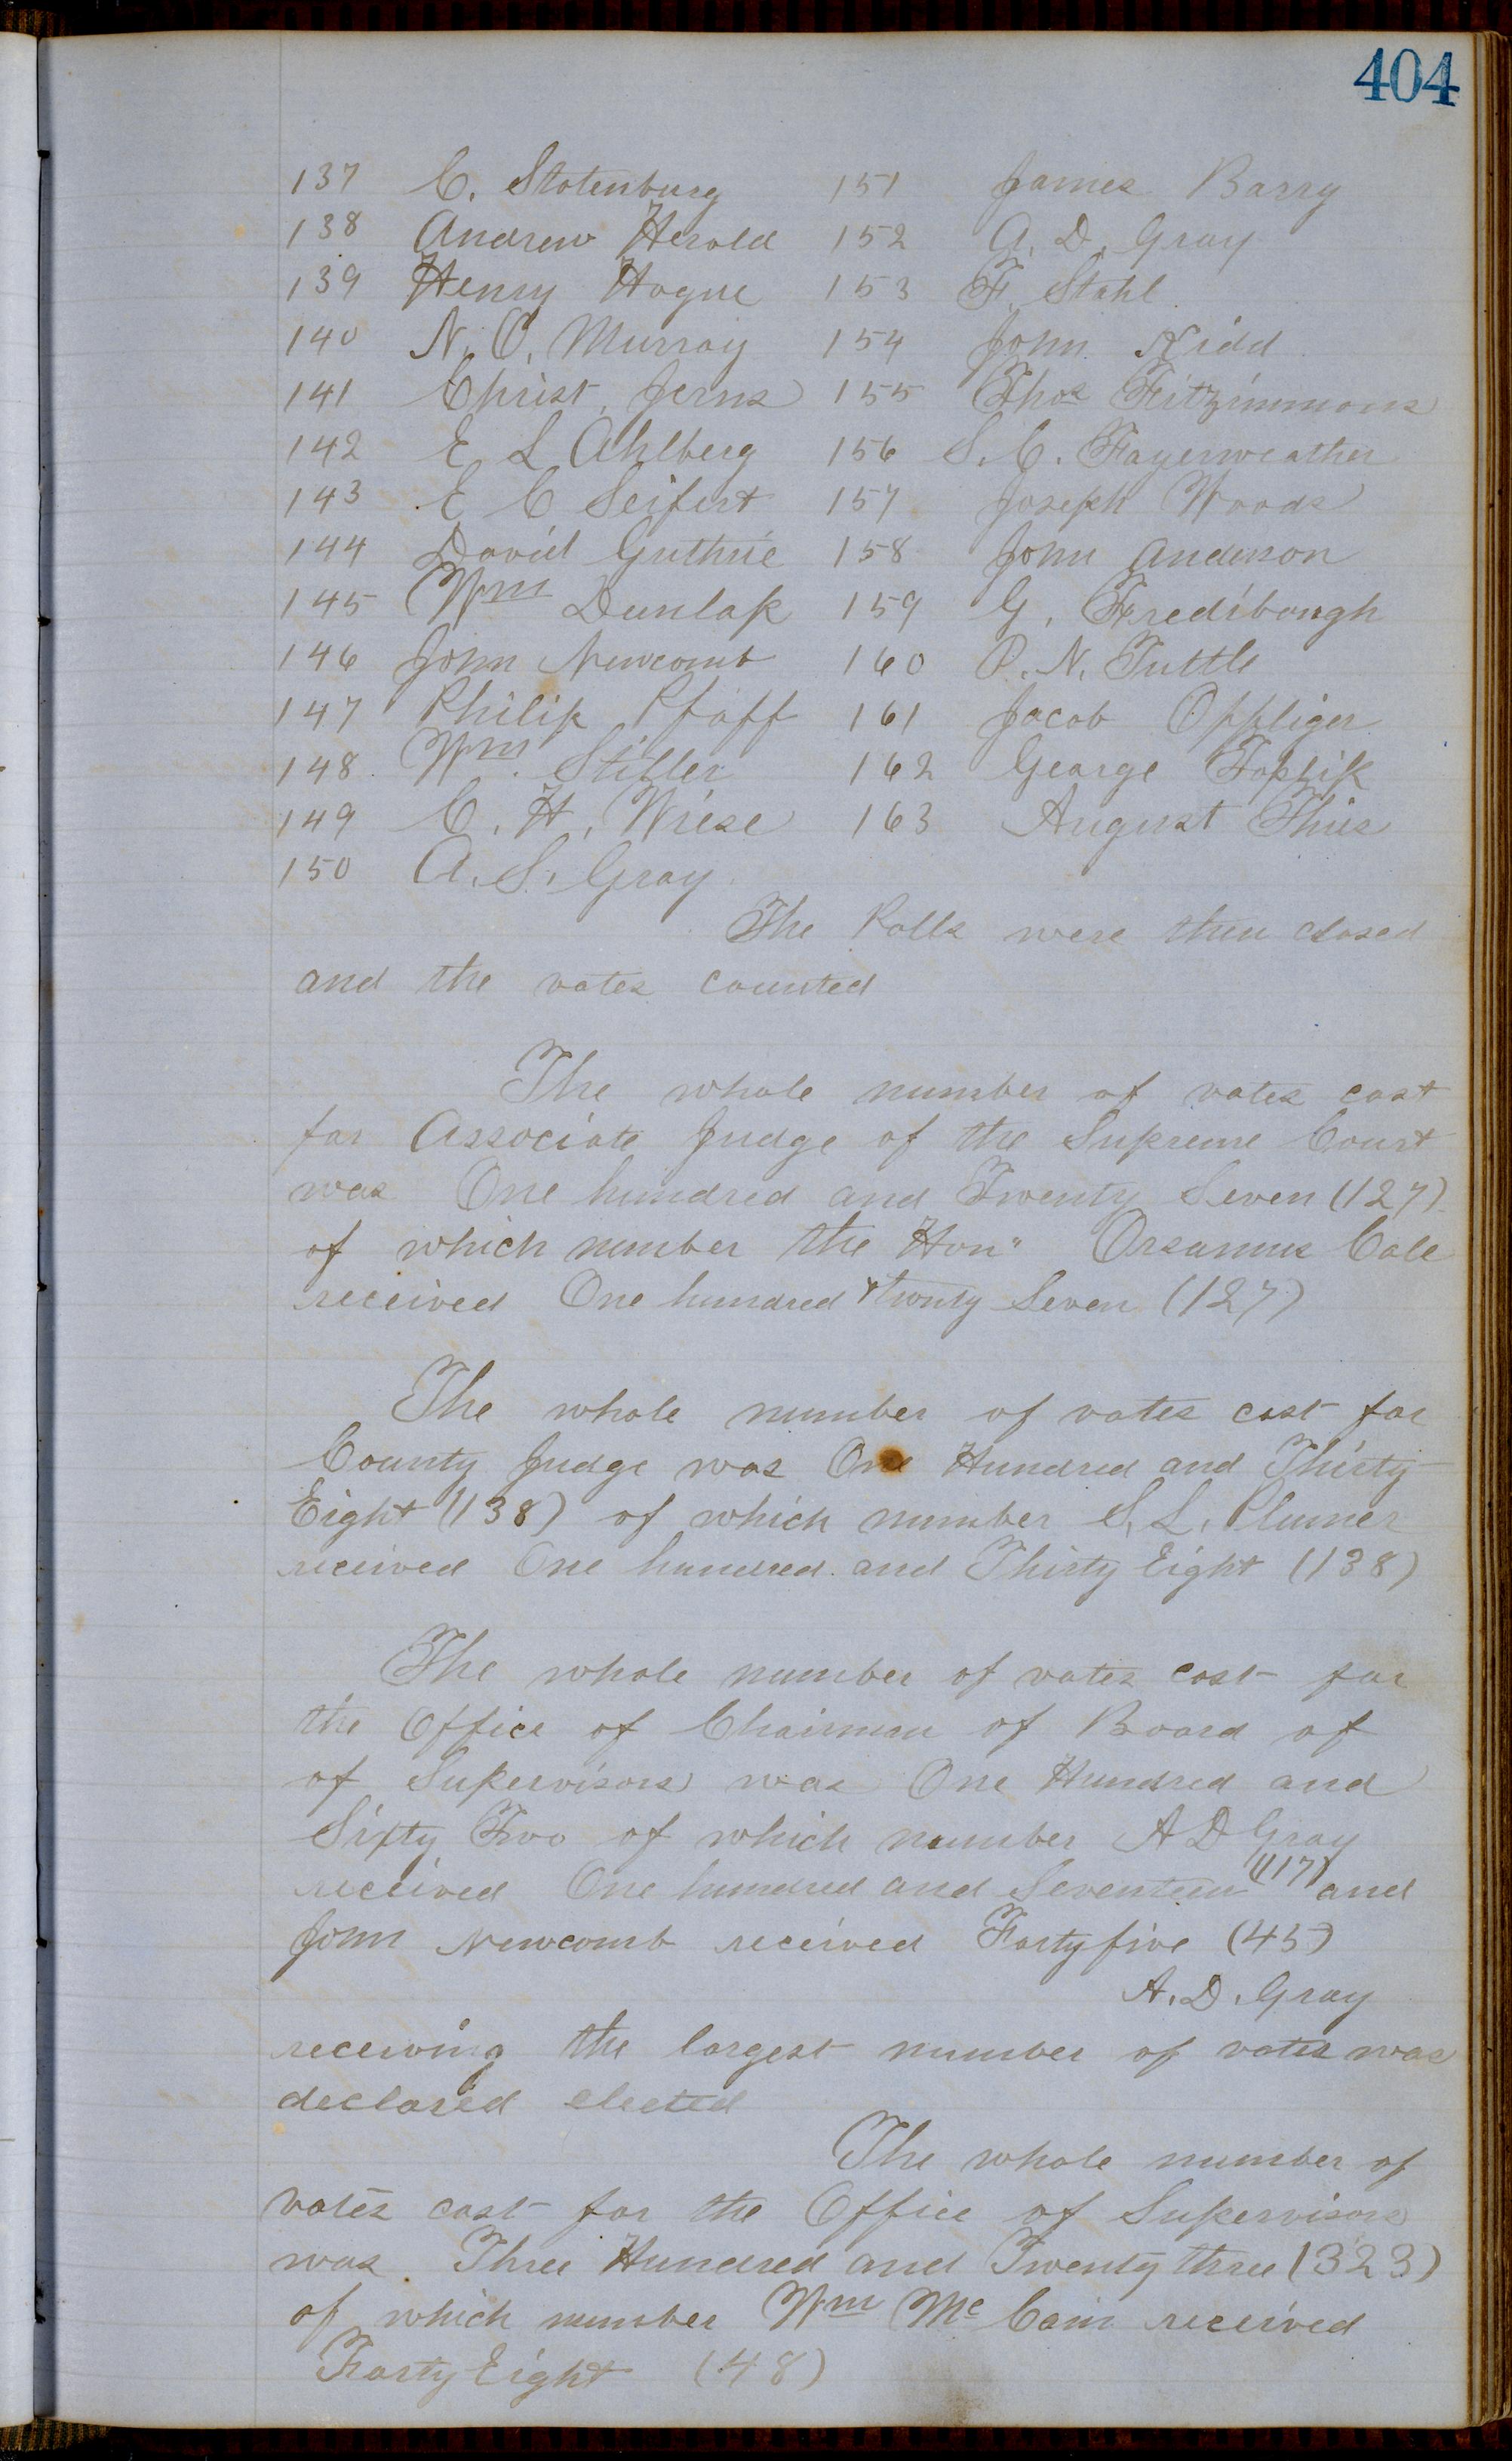 404
137 C. Stotenburg 151 James Barry
138 Andrew Herold 152 A. D. Gray
139 Henry Hogue 153 F. Stahl
140 N. C. Murray 154 John Kidd
141 Christ. Jerns 155 Thos Fitzimmons
142 E L Ahlberg 156 S. C. Fayerweather
143 E C Seifert 157 Joseph Woods
144 David Guthrie 158 John Anderson
145 Wm Dunlap 159 G. Fredibough
146 John Newcomb 160 P. N. Tuttle
147 Philip Pfaff 161 Jacob Oppliger
148 Wm. Stifler 162 George Foplik
149 C. H. Wiese 163 August Thies
150 A. S. Gray
The Polls were then closed
and the votes counted
The whole number of votes cast
for Associate Judge of the Supreme Court
was One hundred and Twenty Seven (127)
of which number the Hon" Orsamus Cole
received One hundred & twenty Seven (127)
The whole number of votes cast for
County Judge was One Hundred and Thirty
Eight (138) of which number S. L. Plumer
received One hundred and Thirty Eight (138)
The whole number of votes cast for
the Office of Chairman of Board of
of Supervisors was One Hundred and
Sixty Two of which number A D Gray
received One hundred and Seventeen (117) and
John Newcomb received Forty five (45)
A. D. Gray
receiving the largest number of votes was
declared elected
The whole number of
votes cast for the Office of Supervisors
was Three Hundred and Twenty three (323)
of which number Wm Mc Cain received
Forty Eight (48)